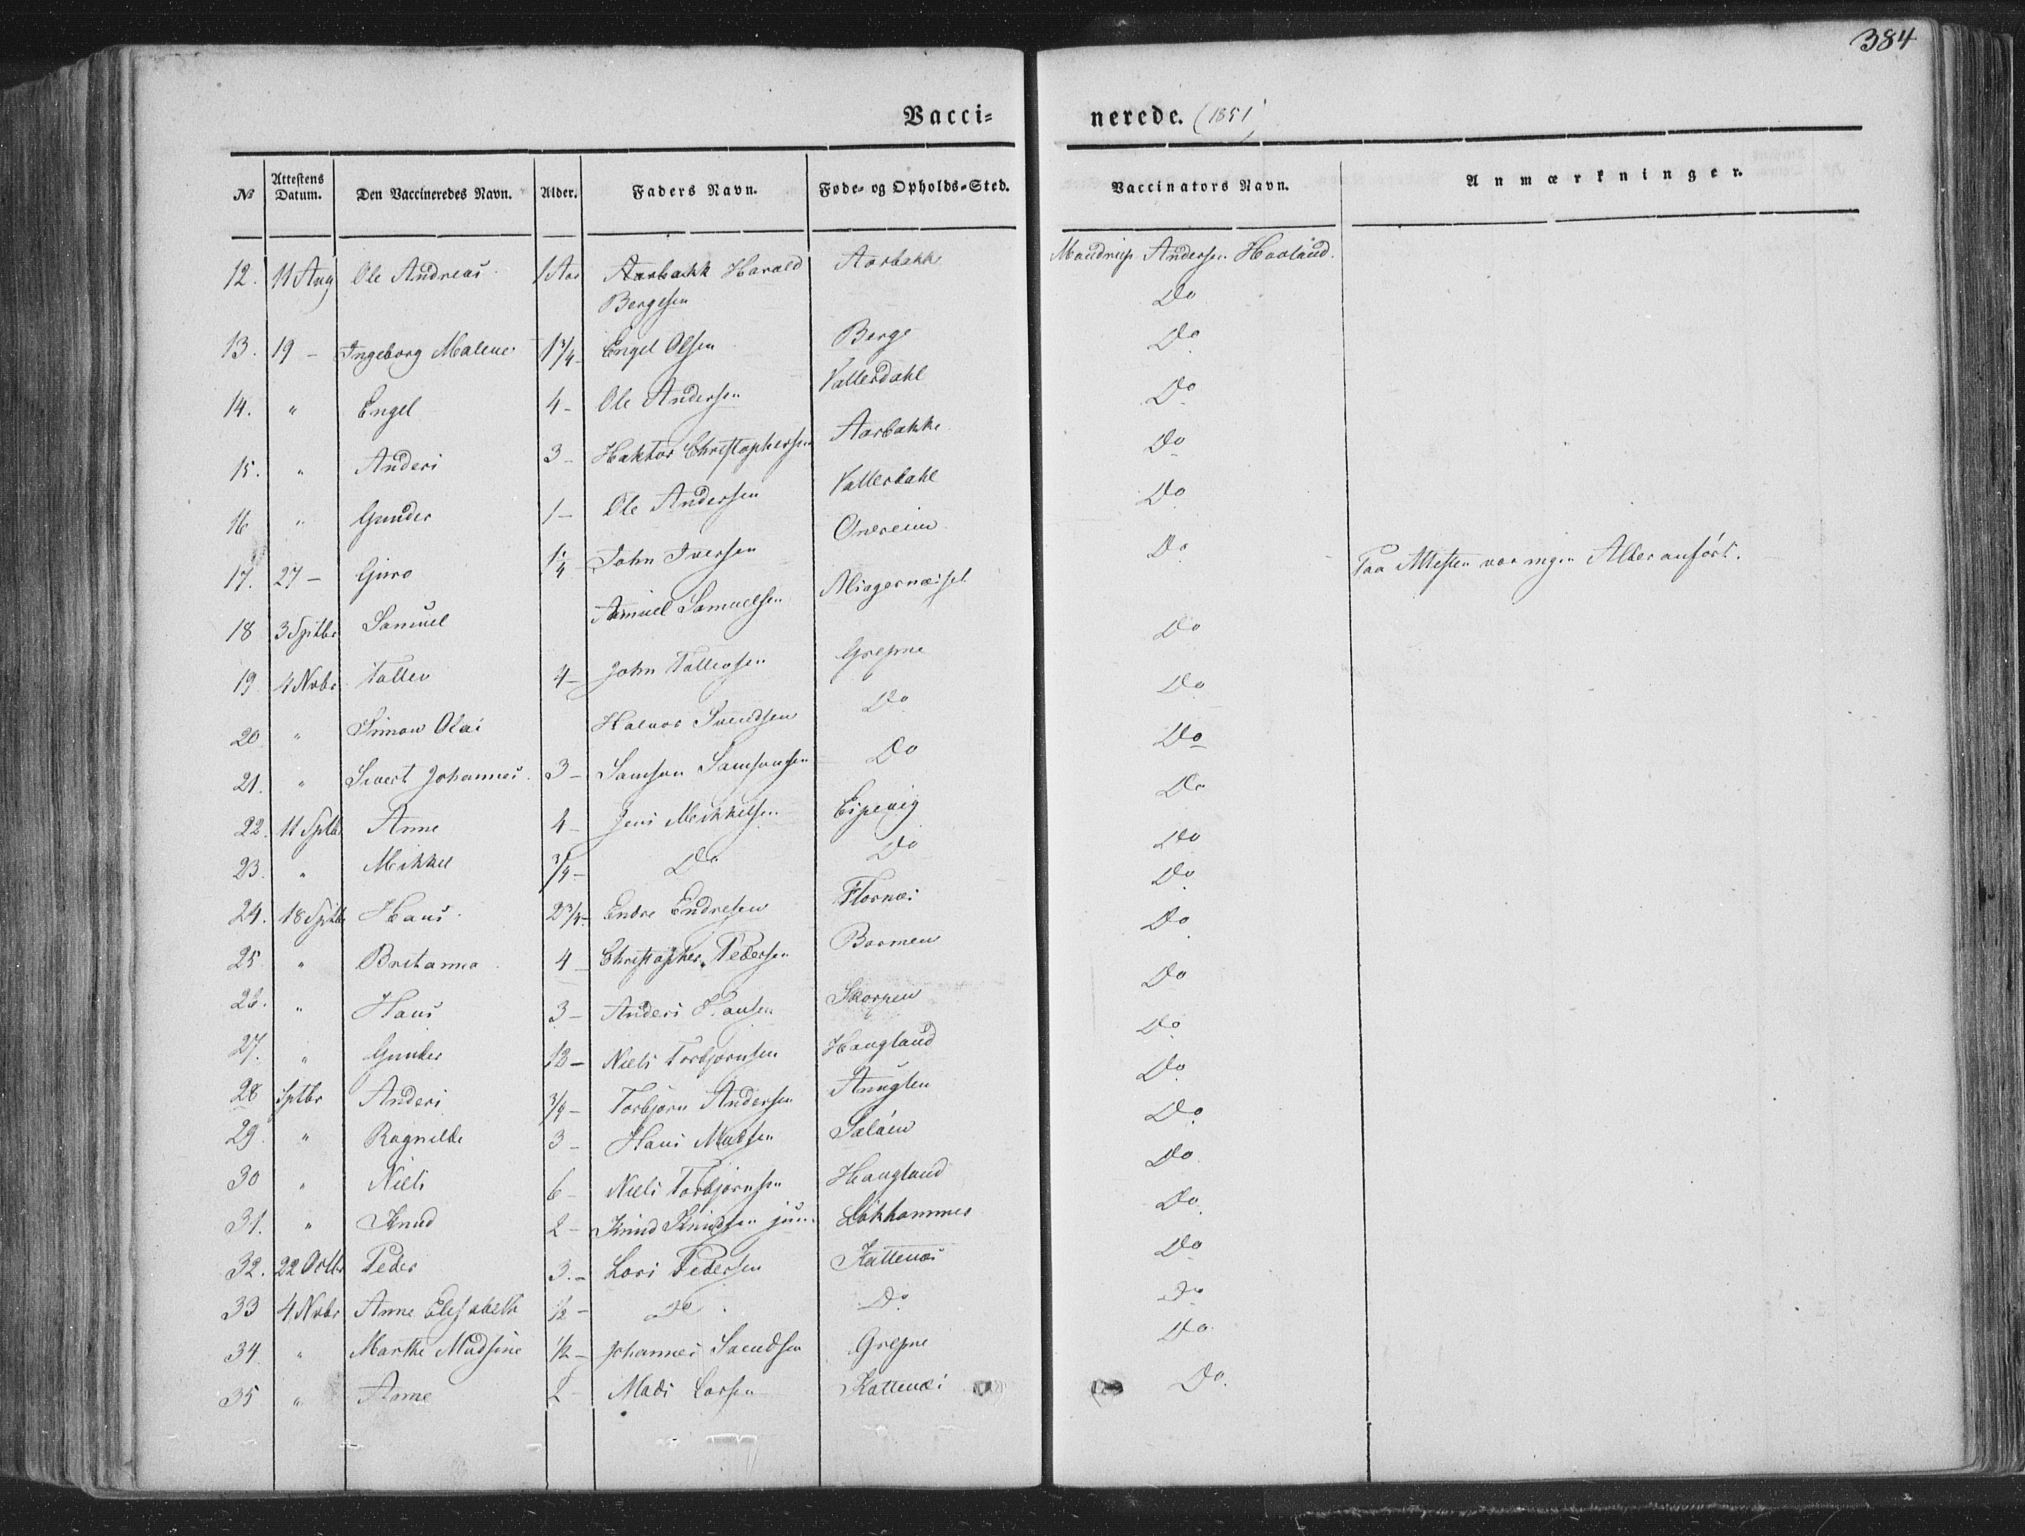 384
Vacci- nerede. (1851)
№ Attestens Datum. Den Vaccineredes Navn. Alder. Faders Navn. Føde- og Opholds-Sted. Vaccinators Navn. Anmærkninger.
12. 11 Aug Ole Andreas 1 Aar Aarbakk Harald Bergesen Aarbakk Mandrup Andersen Haaland.
Do
13. 19 - Ingeborg Malene 1 3/4 - Engel Olsen Berge Do
14. " Engel 4 - Ole Andersen Vatterdahl Do
15. " Anders 3 - Haktor Christophersen Aarbakke Do
16 " Gunder 1 - Ole Andersen Vatterdahl Do
17. 27 - Guro 1/4 John Iversen Onereim Do
18 3 Sptbr Samuel Samuel Samuelsen Do Paa Attesten var ingen Alder anført.
19. 4 Nvbr Tallev 4 - John Tallevsen Grepne Do
20 " Simon Olai Halvor Svendsen Do Do
21. " Sivert Johannes 3 - Samson Samsonsen Do Do
22. 11 Sptbr Anne 4 - Jens Mikkelsen Espevig Do
23. " Mikkel 3/4 - Do Do Do
24. 18 Sptbr Hans 2 3/4 - Endre Endresen Flornæs Do
25 " Britanna 4 - Christopher Pedersen Barmen Do
26. " Hans 3 - Anders Hansen Skorpen Do
27. " Gunder 12 - Niels Torbjørnsen Haugland Do
28 Sptbr Anders 3/4 - Torbjørn Andersen Anuglen Do
29. " Ragnilde 3 - Hans Madsen Do
30 " Niels 6 - Niels Torbjørnsen Haugland Do
31. " Knud 2 - Knud Knudsen jun. Løkhammer Do
32. 22 Octbr Peder 3. - Lars Pedersen Kattenæs Do
33 4 Nvbr Anne Elisabeth 1/2 - Do Do Do
34 " Marthe Madsine 1/2 - Johannes Svendsen Grepne Do
35 " Anne 2 - Mads Larsen Kattenæs Do.